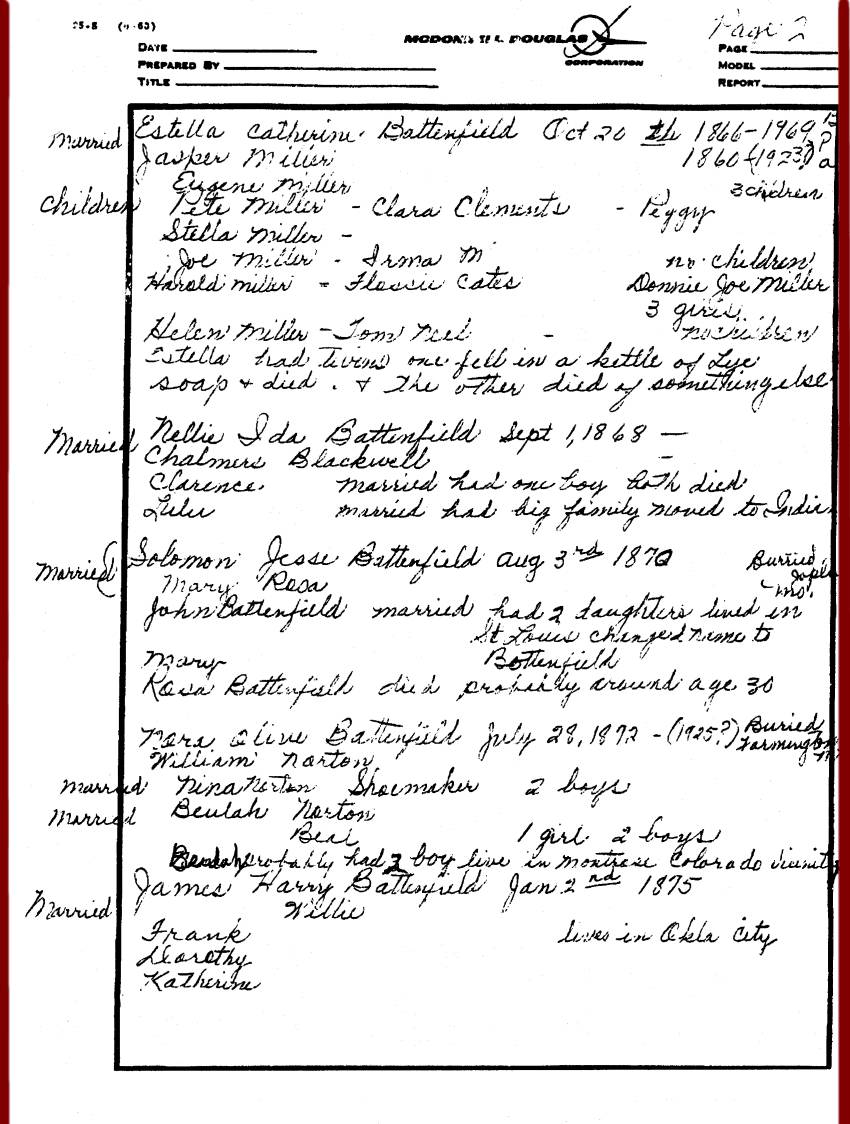 25-8 (9-63)
MCDONNELL DOUGLAS
CORPORATION
Page 2
DATE
PREPARED BY
TITLE
PAGE
MODEL
REPORT
Married Estella Catherine Battenfield Oct 20 th 1866-1969
Jasper Miller 1860-(1923?)
Eugene Miller 3 children
Children Pete Miller - Clara Clements - Peggy
Stella Miller -
Joe Miller - Irma M no children
Harold Miller - Flossie Cates Donnie Joe Miller
3 girls
Helen Miller - Tom Need - no children
Estella had twins one fell in a kettle of Lye
soap & died. & the other died of something else
Married Nellie Ida Battenfield Sept 1, 1868 —
Chalmers Blackwell —
Clarence married had one boy both died
Lulu married had big family moved to India
Married Solomon Jesse Battenfield Aug 3rd 1870 Burried
Mary Rosa Mo.
John Battenfield married had 2 daughters lived in
St Louis changed name to
Mary Bottenfield
Rosa Battenfield died probably around age 30
Nora Olive Battenfield July 28, 1872 - (1925?) Buried
William Norton Farmington
married Nina Norton Shoemaker 2 boys
Married Beulah Norton
Beal 1 girl 2 boys
Beulah probably had 2 boy live in Montrose Colorado vicinity
James Harry Battenfield Jan 2nd 1875
Married Willie
Frank lives in Okla City
Dorothy
Katherine